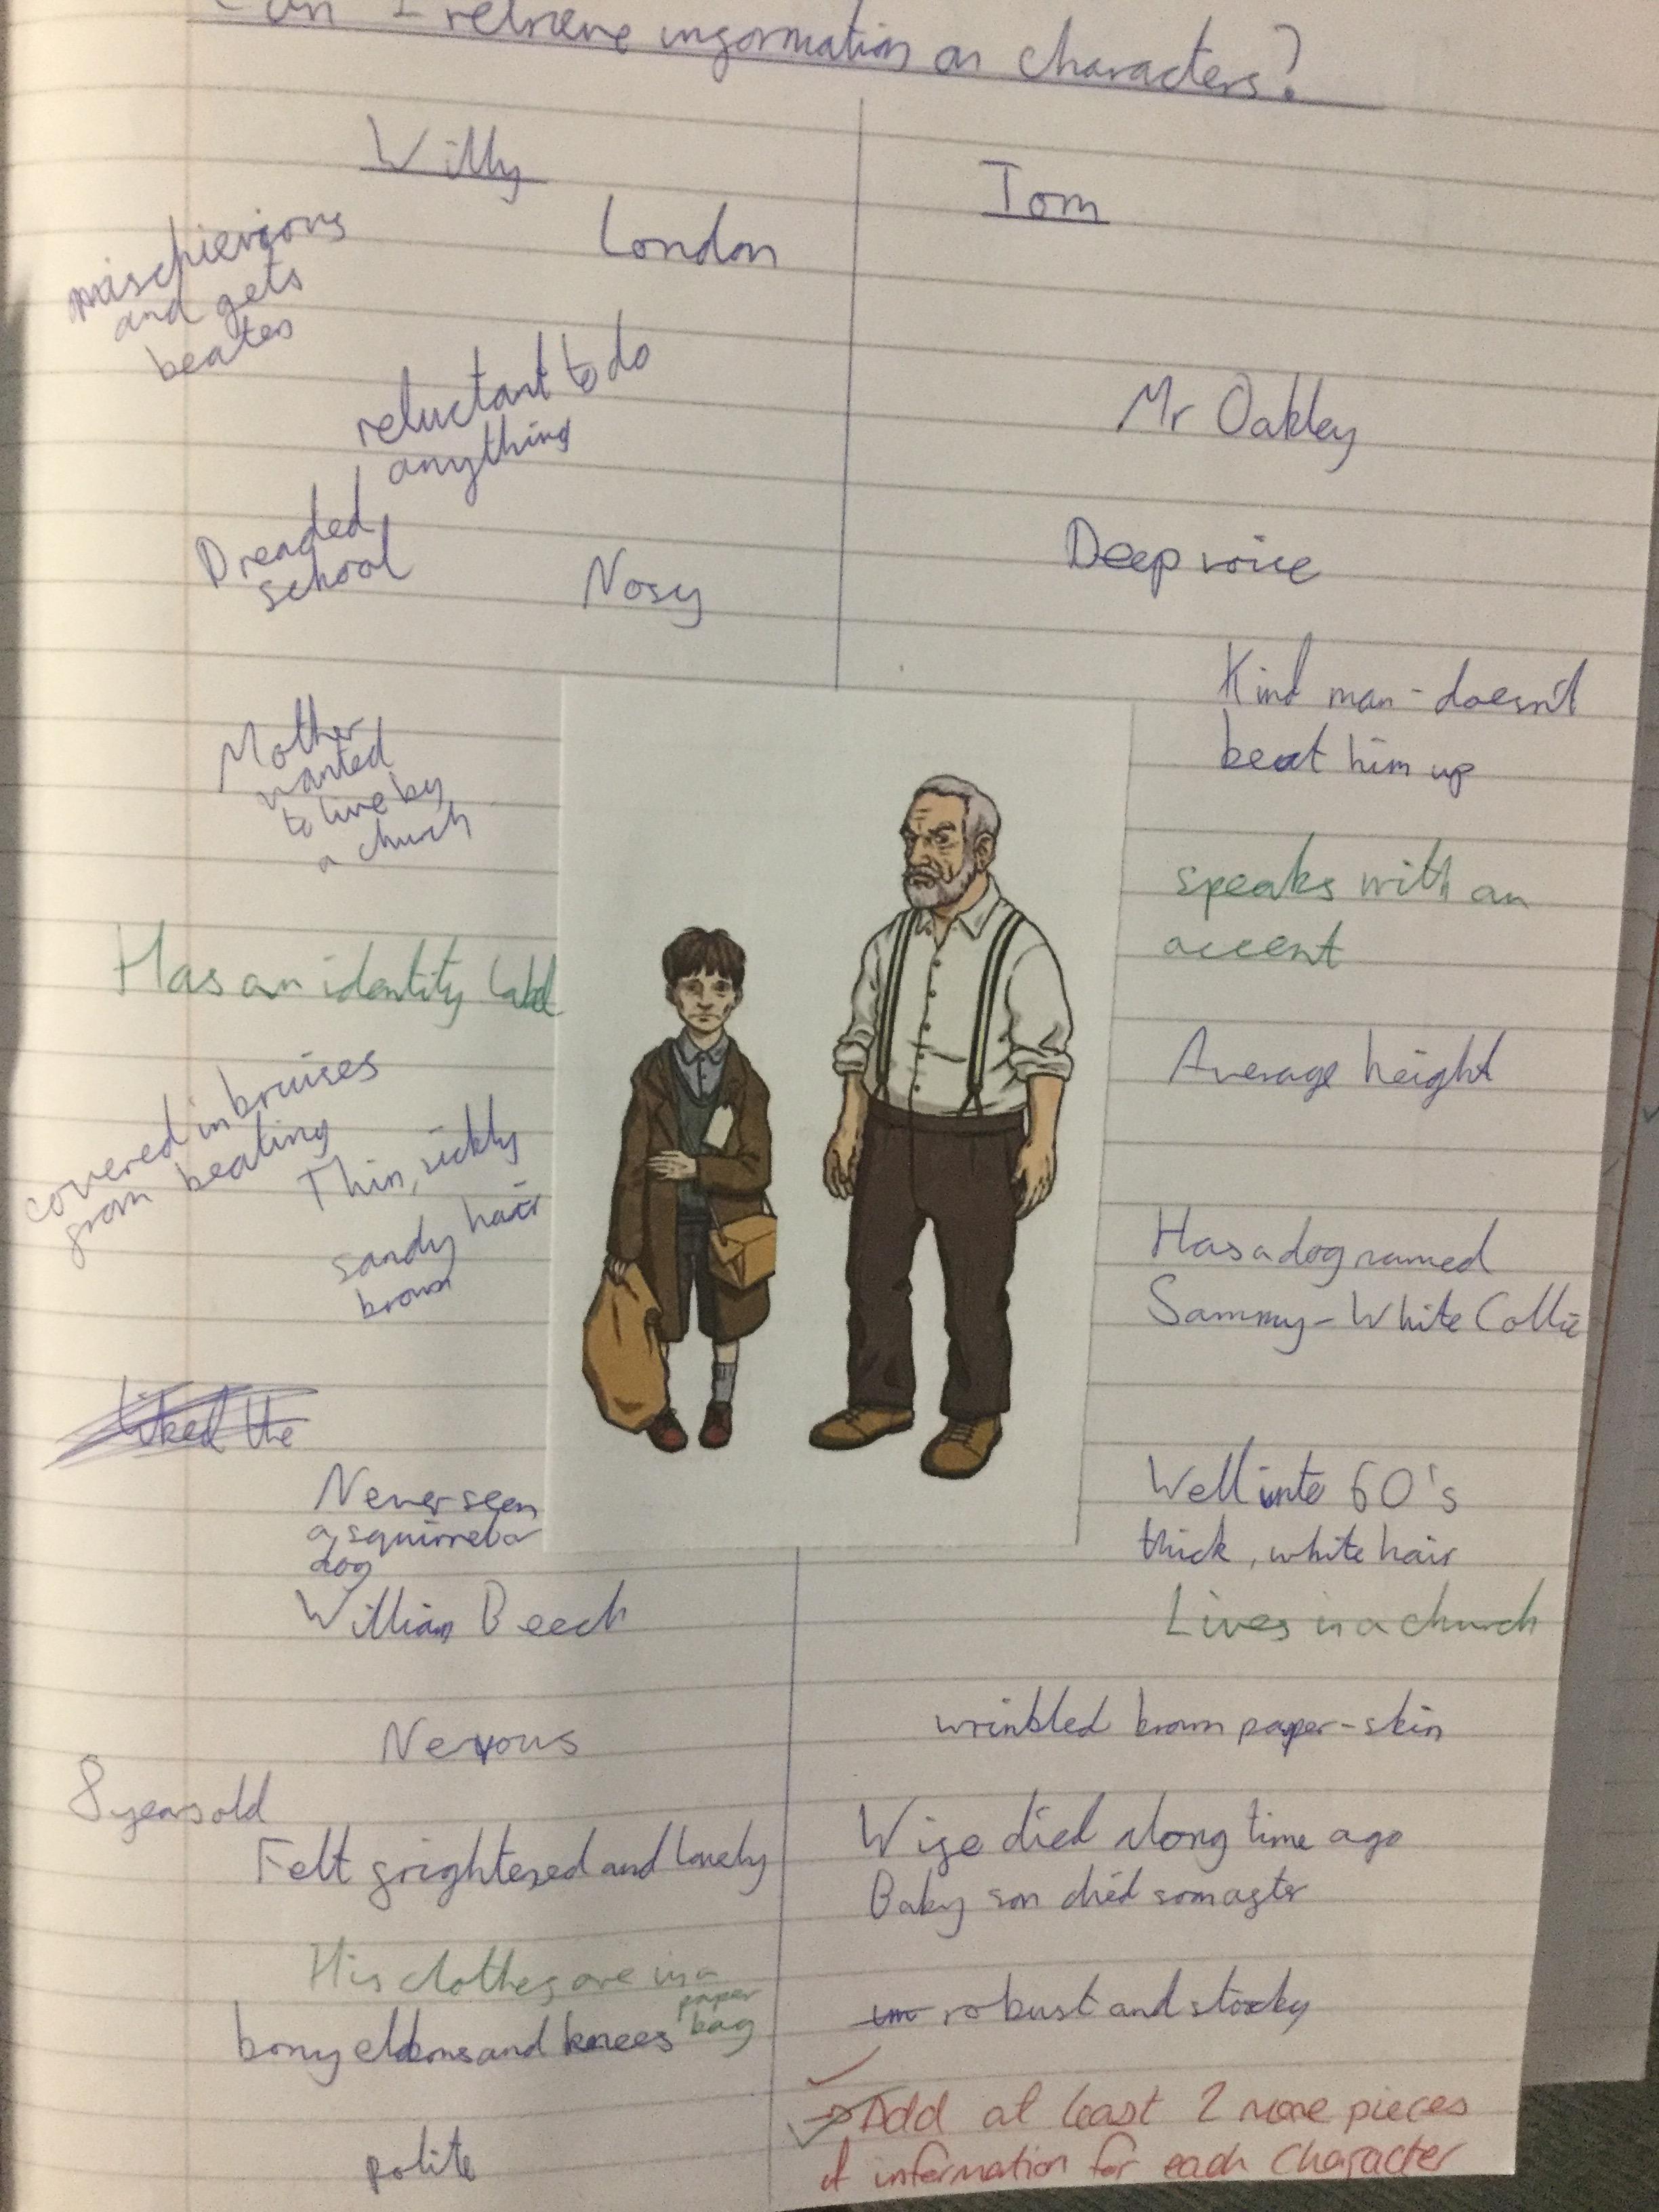 Can I retrieve information on characters?
Willy
London
mischievious
and gets
beaten
reluctant to do
anything
Dreaded
school
Nosy
Mother
wanted
to live by
a church
Has an identity label
covered in bruises
from beating
Thin, sickly
sandy hair
brown
liked the
Never seen
a squirrel or
dog
William Beech
Nervous
8 years old
Felt frightened and lonely
His clothes are in a
paper
bag
bony elbows and knees
polite
Tom
Mr Oakley
Deep voice
Kind man - doesn't
beat him up
speaks with an
accent
Average height
Has a dog named
Sammy - White Collie
Well into 60's
thick, white hair
Lives in a church
wrinkled brown paper-skin
Wife died along time ago
Baby son died soon after
robust and stocky
→ Add at least 2 more pieces
of information for each character